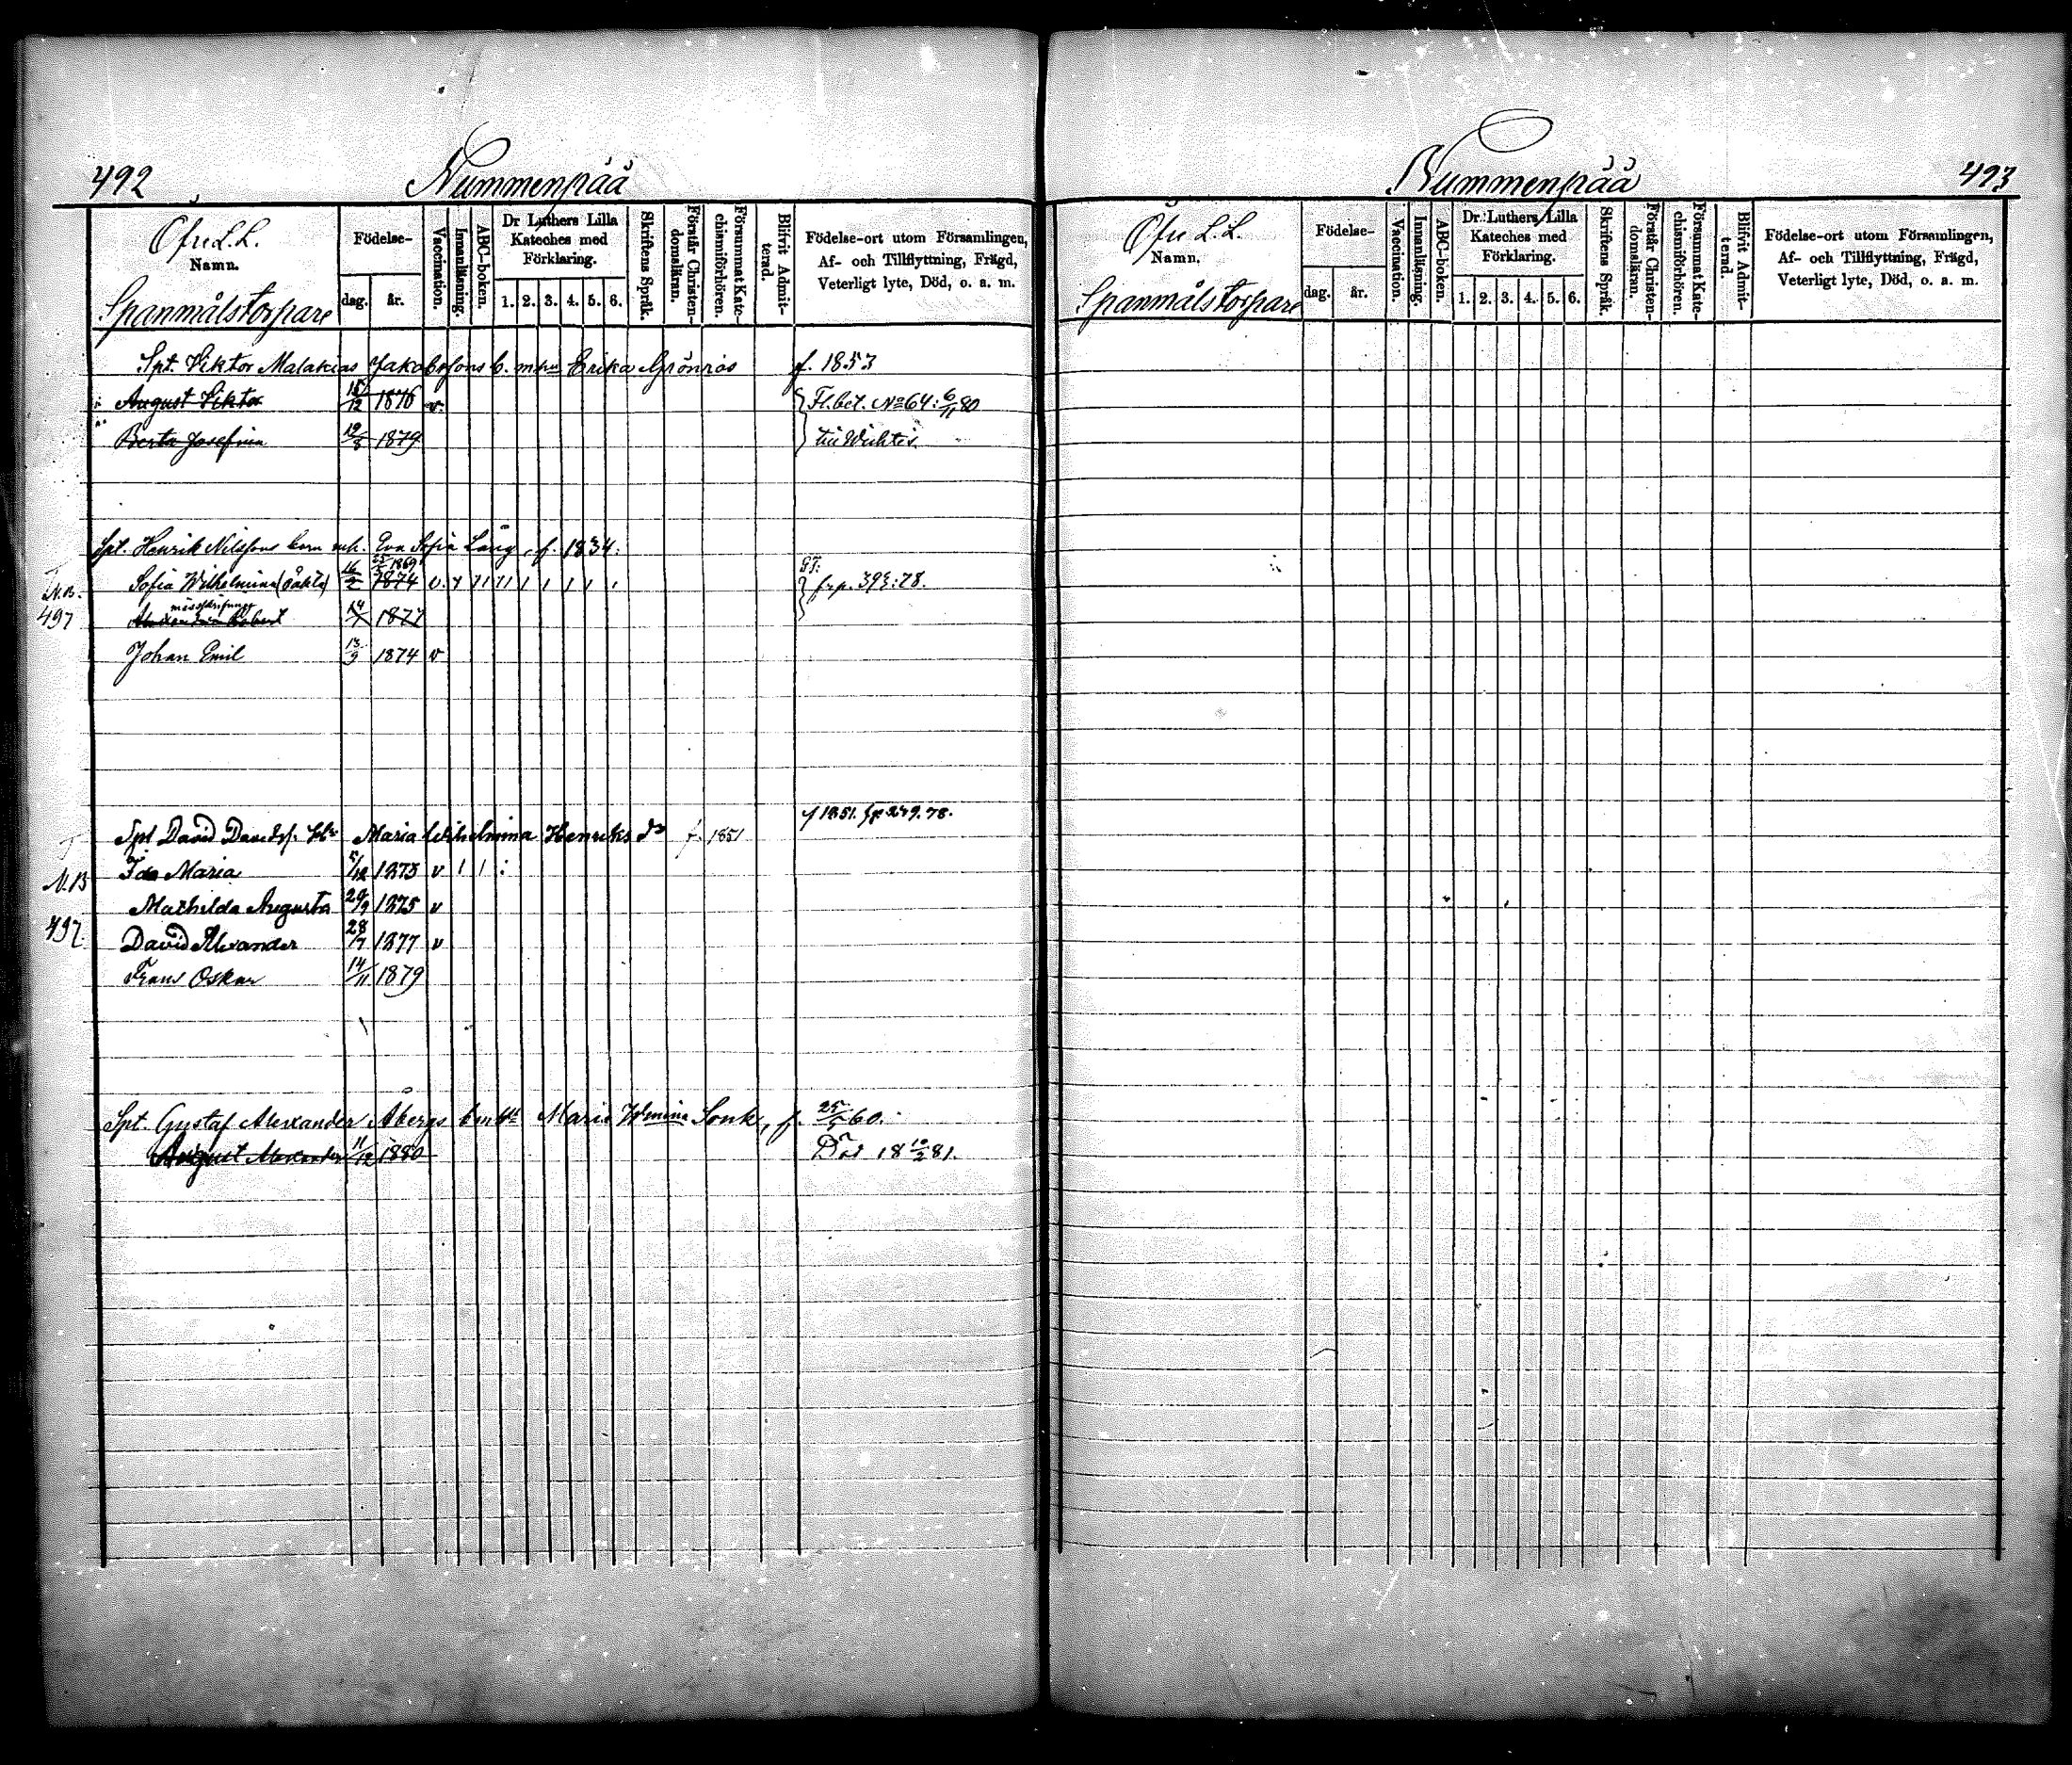 492
Nummenpää
Öfre L.L.
Namn.
Spanmålstorpare
Födelse-
dag.
år.
Vaccination.
Innanläsning.
ABC-boken.
Dr Luthers Lilla
Kateches med
Förklaring.
1. 2. 3. 4. 5. 6.
Skriftens Språk.
Förstår Christen-
domsläran.
Försummat Kate-
chismiförhören.
Blifvit Admit-
terad.
Födelse-ort utom Församlingen,
Af- och Tillflyttning, Frägd,
Veterligt lyte, Död, o. a. m.
Spt. Viktor Malakias Jakobssons b. m. hu Erika Grönroos f. 1853
August Viktor 15/12 1876 v. Fl.bet. No 64: 6/11 80
Berta Josefina 19/8 1879 till Wichtis
Spt. Henrik Nilssons barn mh. Eva Sofia Lång, f. 1834.
25/5 1869
Sofia Wilhelmina (oäkta) 16/2 1874 v. frp. 393:78.
N.B.
497
misskrifning
14/X 1877
Johan Emil 13/9 1874 v
f 1851. fp 249.78.
Spt David Davidsf. Maria Wilhelmina Henriks dr f. 1851
Ida Maria 5/12 1873 v
N.B
Mathilda Augusta 29/9 1875 v
497.
David Alexander 28/7 1877 v
Frans Oskar 14/11 1879
Spt. Gustaf Alexander Åbergs b m Maria Wmina Sonk, f. 25/5 60.
August Alexander 11/12 1880 Död 18 10/2 81.
493
Nummenpää
Öfre L.L.
Namn.
Spanmålstorpare
Födelse-
dag.
år.
Vaccination.
Innanläsning.
ABC-boken.
Dr. Luthers Lilla
Kateches med
Förklaring.
1. 2. 3. 4. 5. 6.
Skriftens Språk.
Förstår Christen-
domsläran.
Försummat Kate-
chismiförhören.
Blifvit Admit-
terad.
Födelse-ort utom Församlingen,
Af- och Tillflyttning, Frägd,
Veterligt lyte, Död, o. a. m.